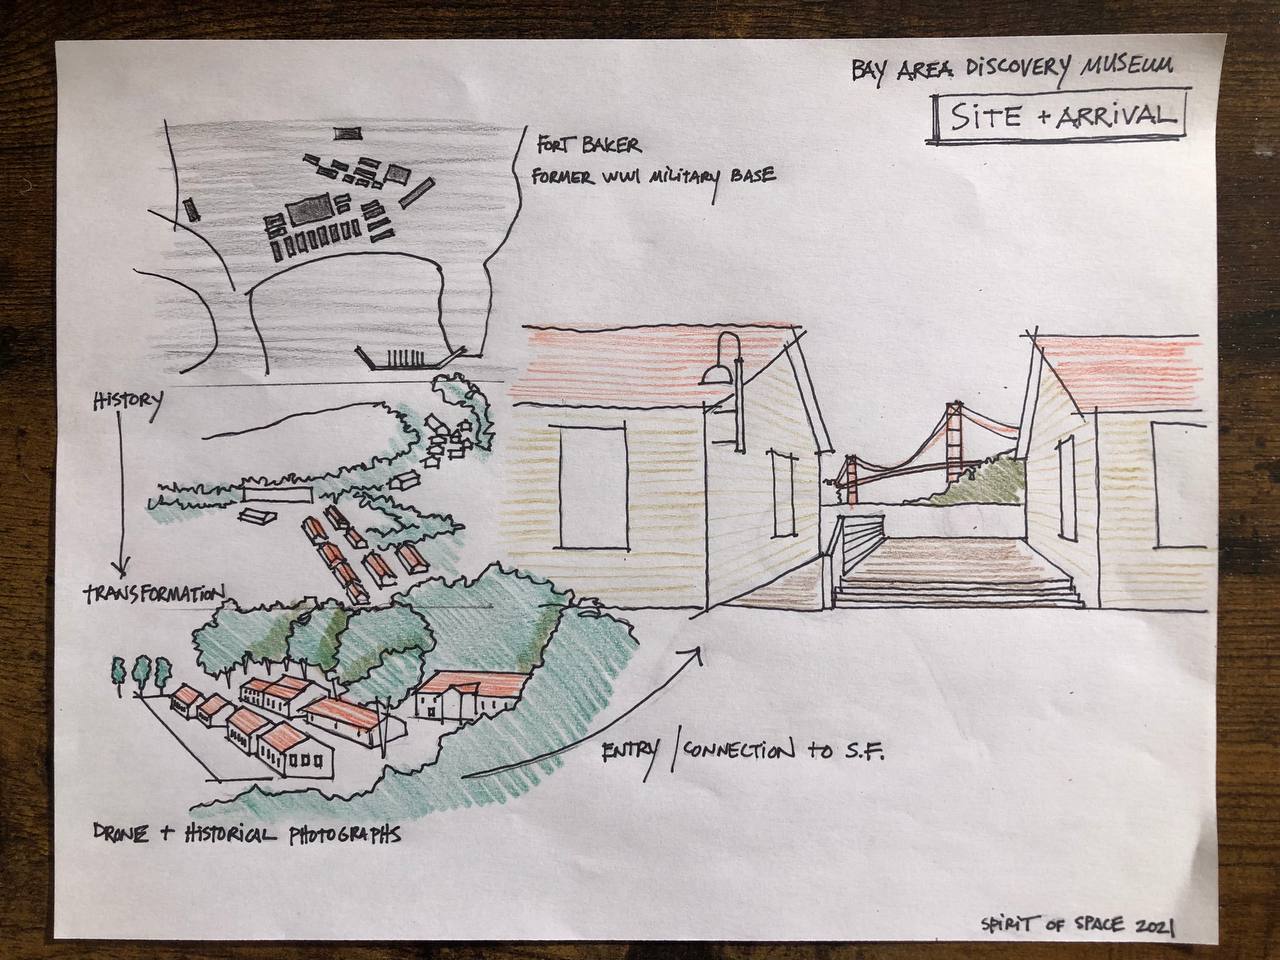 BAY AREA DISCOVERY MUSEUM
SITE + ARRIVAL
FORT BAKER
FORMER WWI MILITARY BASE
HISTORY
TRANSFORMATION
ENTRY / CONNECTION TO S.F.
DRONE + HISTORICAL PHOTOGRAPHS
SPIRIT OF SPACE 2021